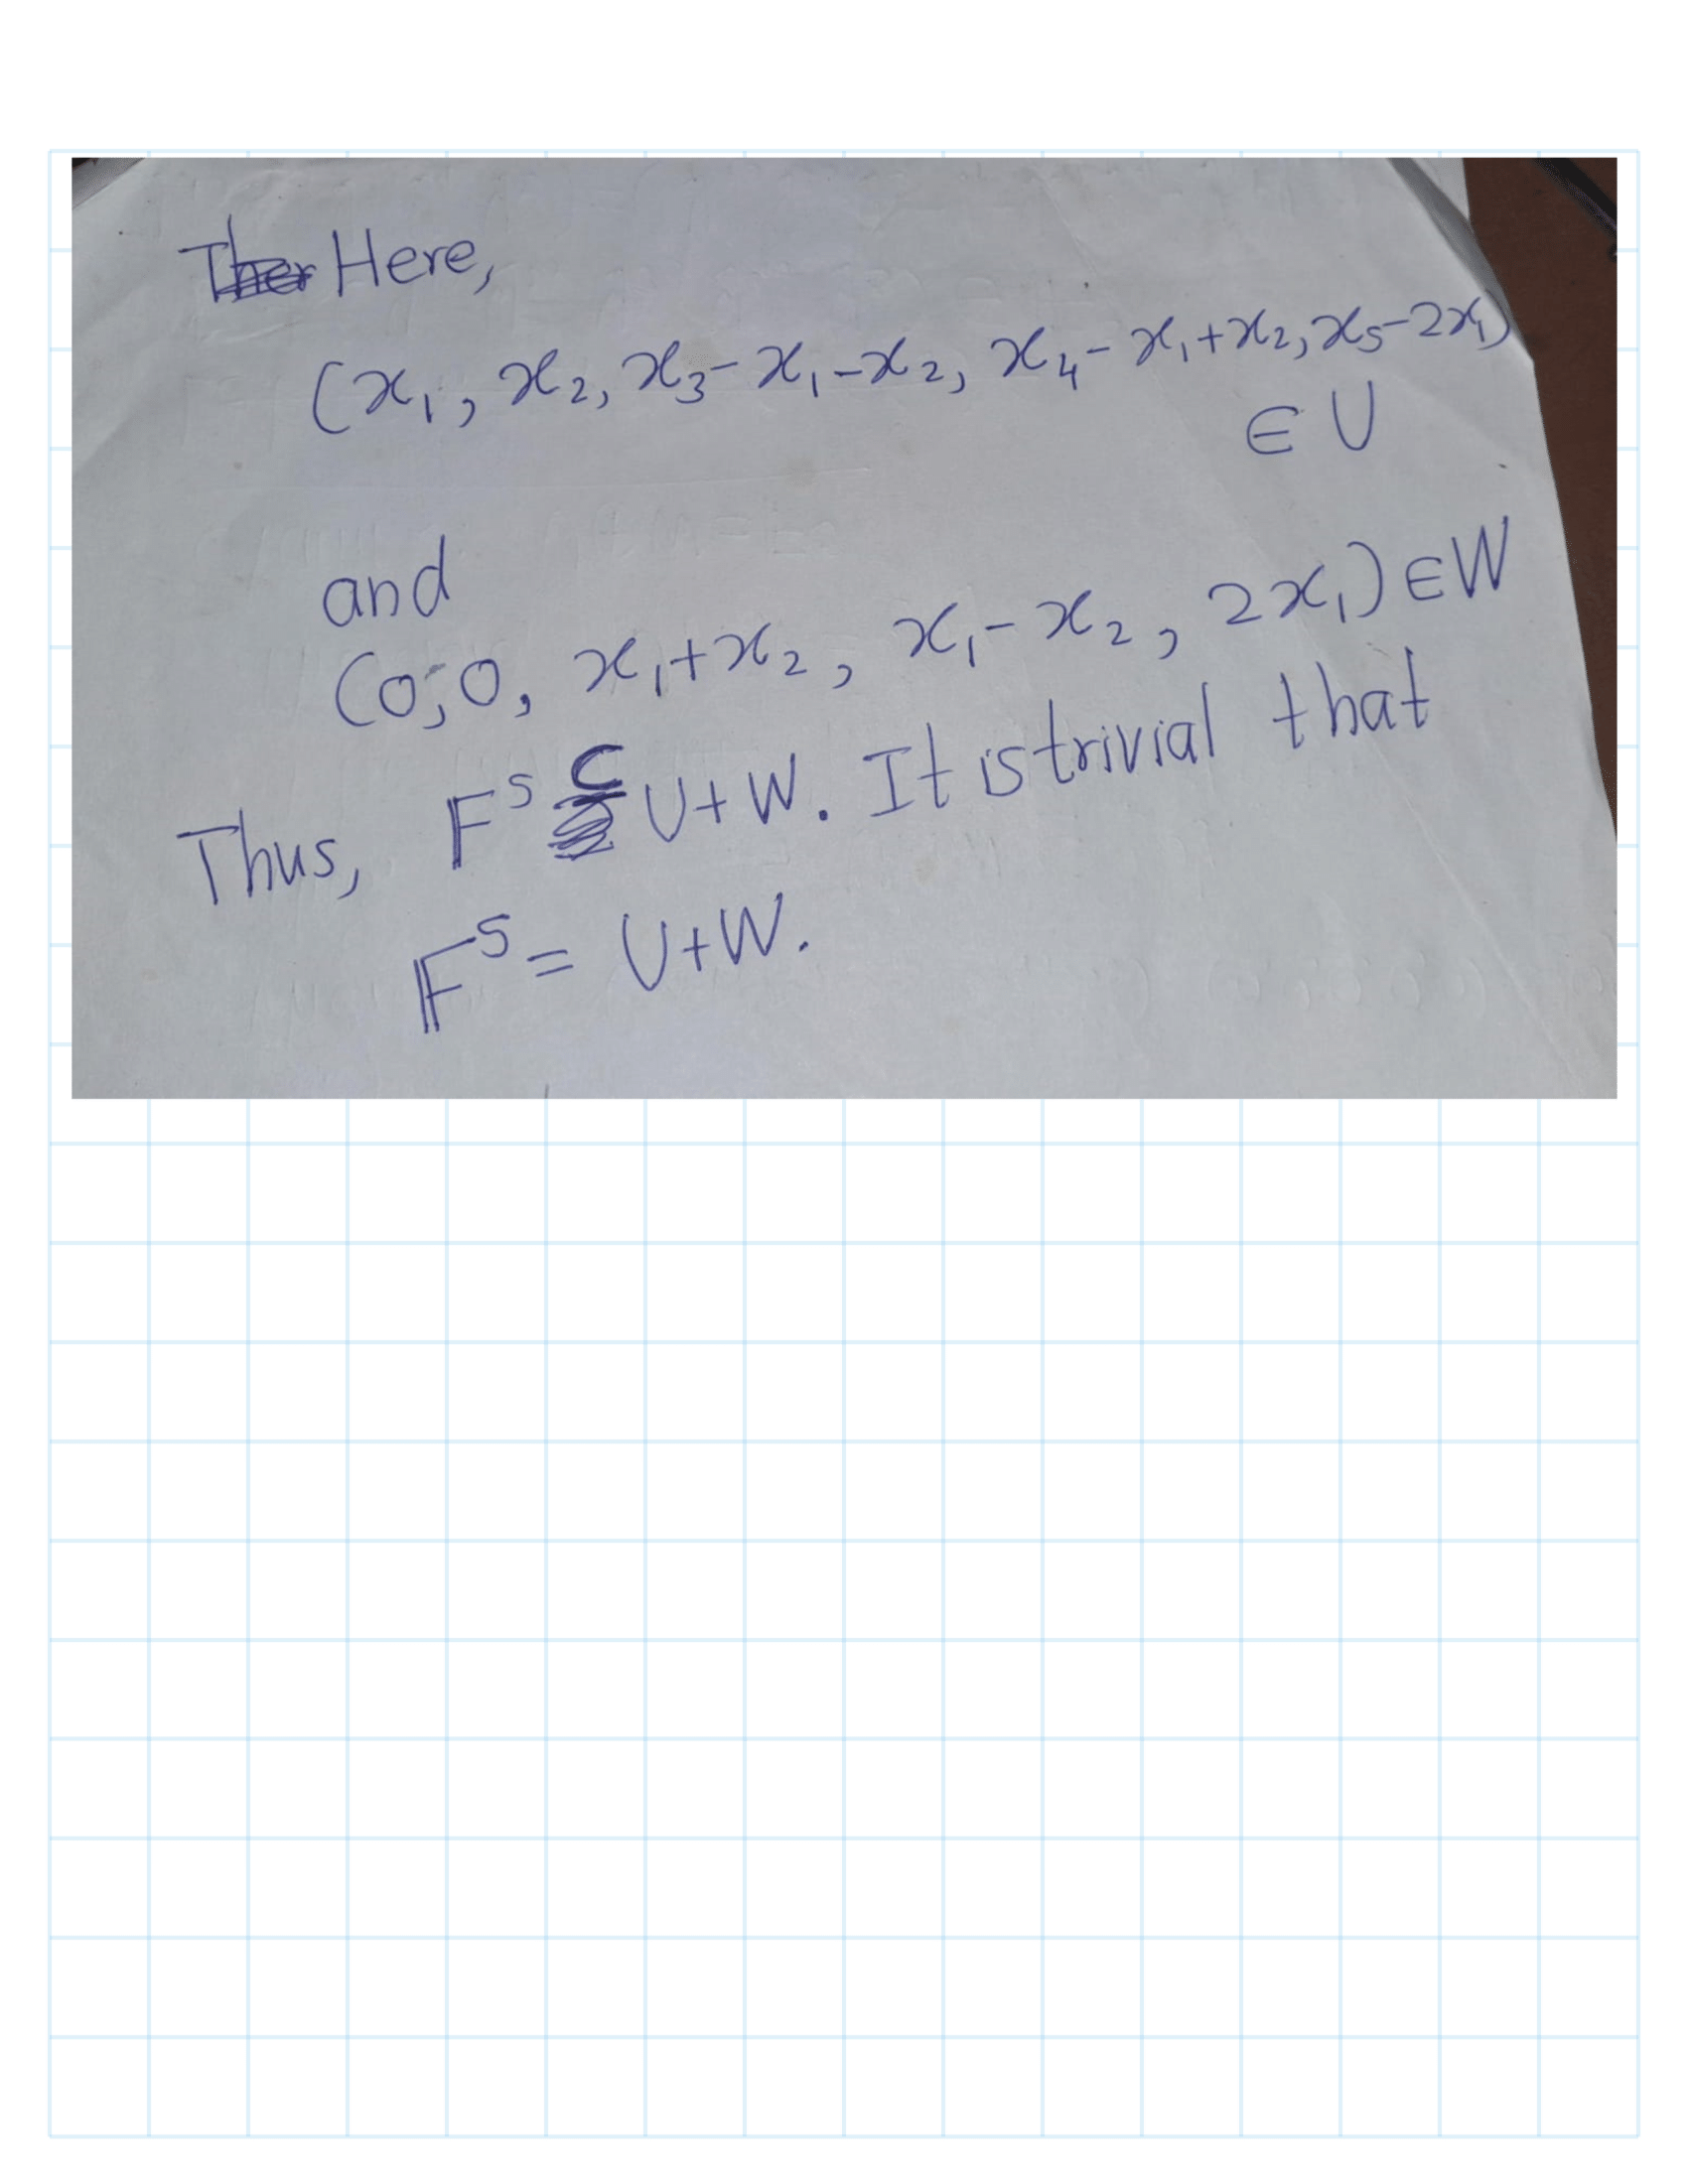 Here,
(x₁, x₂, x₃-x₁-x₂, x₄-x₁+x₂, x₅-2x₁)
∈ U
and
(0,0, x₁+x₂, x₁-x₂, 2x₁) ∈ W
Thus, F⁵ ⊆ U+W. It is trivial that
F⁵ = U+W.